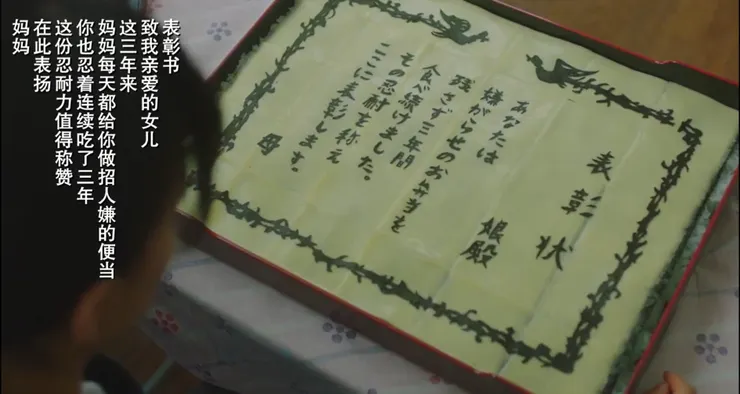 表彰书
致我亲爱的女儿
这三年来
妈妈每天都给你做招人嫌的便当
你也忍着连续吃了三年
这份忍耐力值得称赞
在此表扬
妈妈
表彰状
娘殿
あなたは
嫌がらせのお弁当を
残さず三年間
食べ続けました。
その忍耐を称え
ここに表彰します。
母